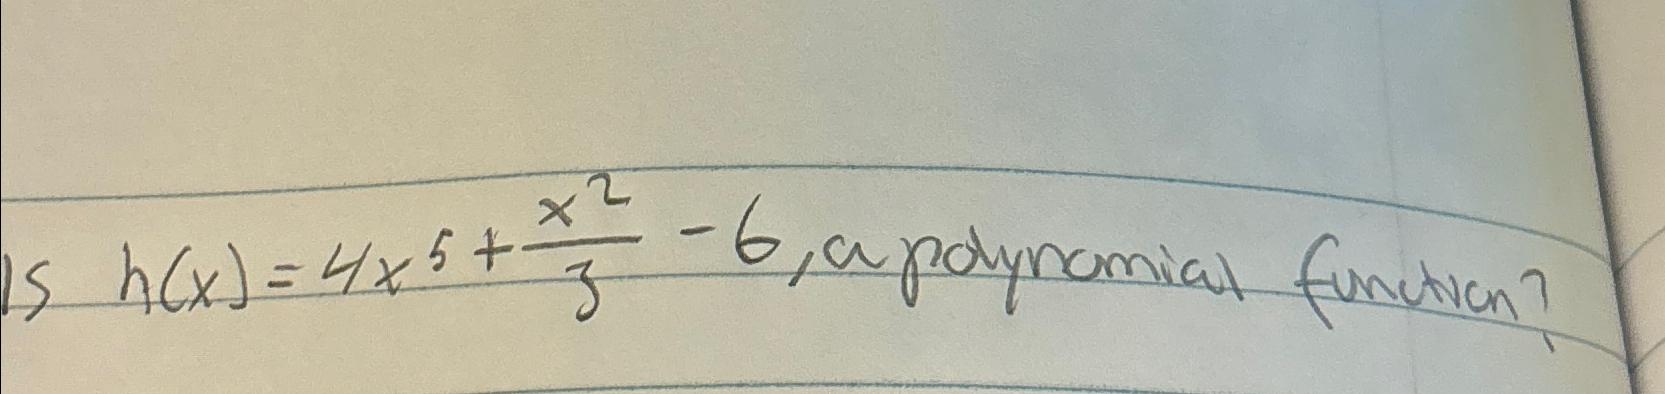 Is h(x) = 4x⁵ + x²/3 - 6, a polynomial function?